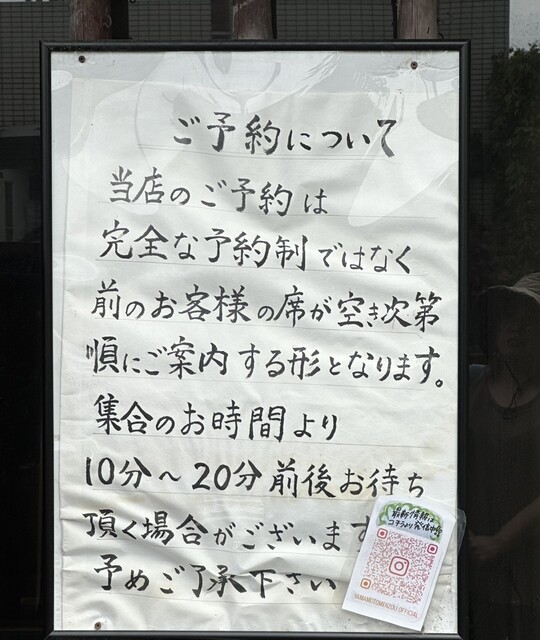 ご予約について
当店のご予約は
完全な予約制ではなく
前のお客様の席が空き次第
順にご案内する形となります。
集合のお時間より
10分～20分前後お待ち
頂く場合がございます
予めご了承下さい
最新情報は
コチラより発信中!!
YAMAMOTOMENZOU OFFICIAL